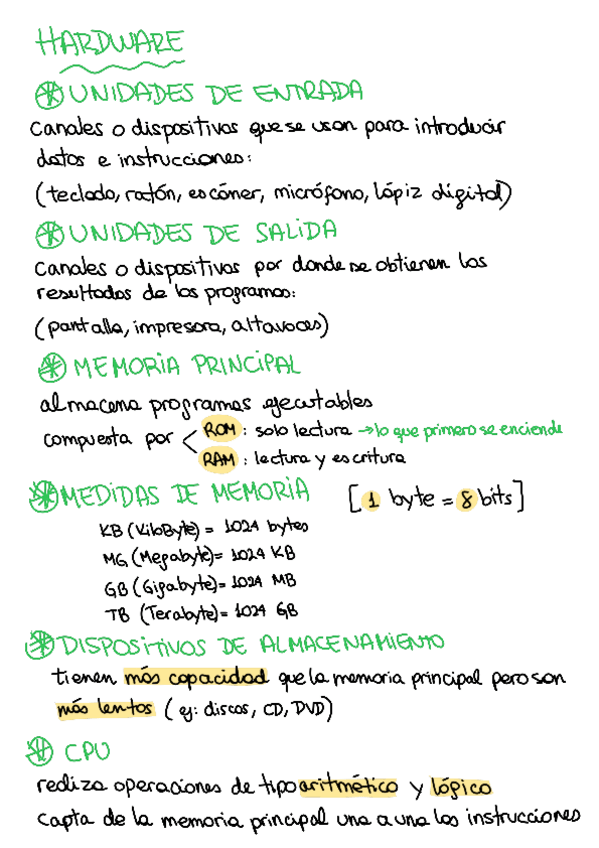 HARDWARE
UNIDADES DE ENTRADA
canales o dispositivos que se usan para introducir
datos e instrucciones:
(teclado, ratón, escáner, micrófono, lápiz digital)
UNIDADES DE SALIDA
canales o dispositivos por donde se obtienen los
resultados de los programas:
(pantalla, impresora, altavoces)
MEMORIA PRINCIPAL
almacena programas ejecutables
compuesta por < ROM: solo lectura → lo que primero se enciende
RAM: lectura y escritura
MEDIDAS DE MEMORIA [1 byte = 8 bits]
KB (KiloByte) = 1024 bytes
MG (Megabyte) = 1024 KB
GB (Gigabyte) = 1024 MB
TB (Terabyte) = 1024 GB
DISPOSITIVOS DE ALMACENAMIENTO
tienen más capacidad que la memoria principal pero son
más lentos (ej: discos, CD, DVD)
CPU
realiza operaciones de tipo aritmético y lógico
capta de la memoria principal una a una las instrucciones